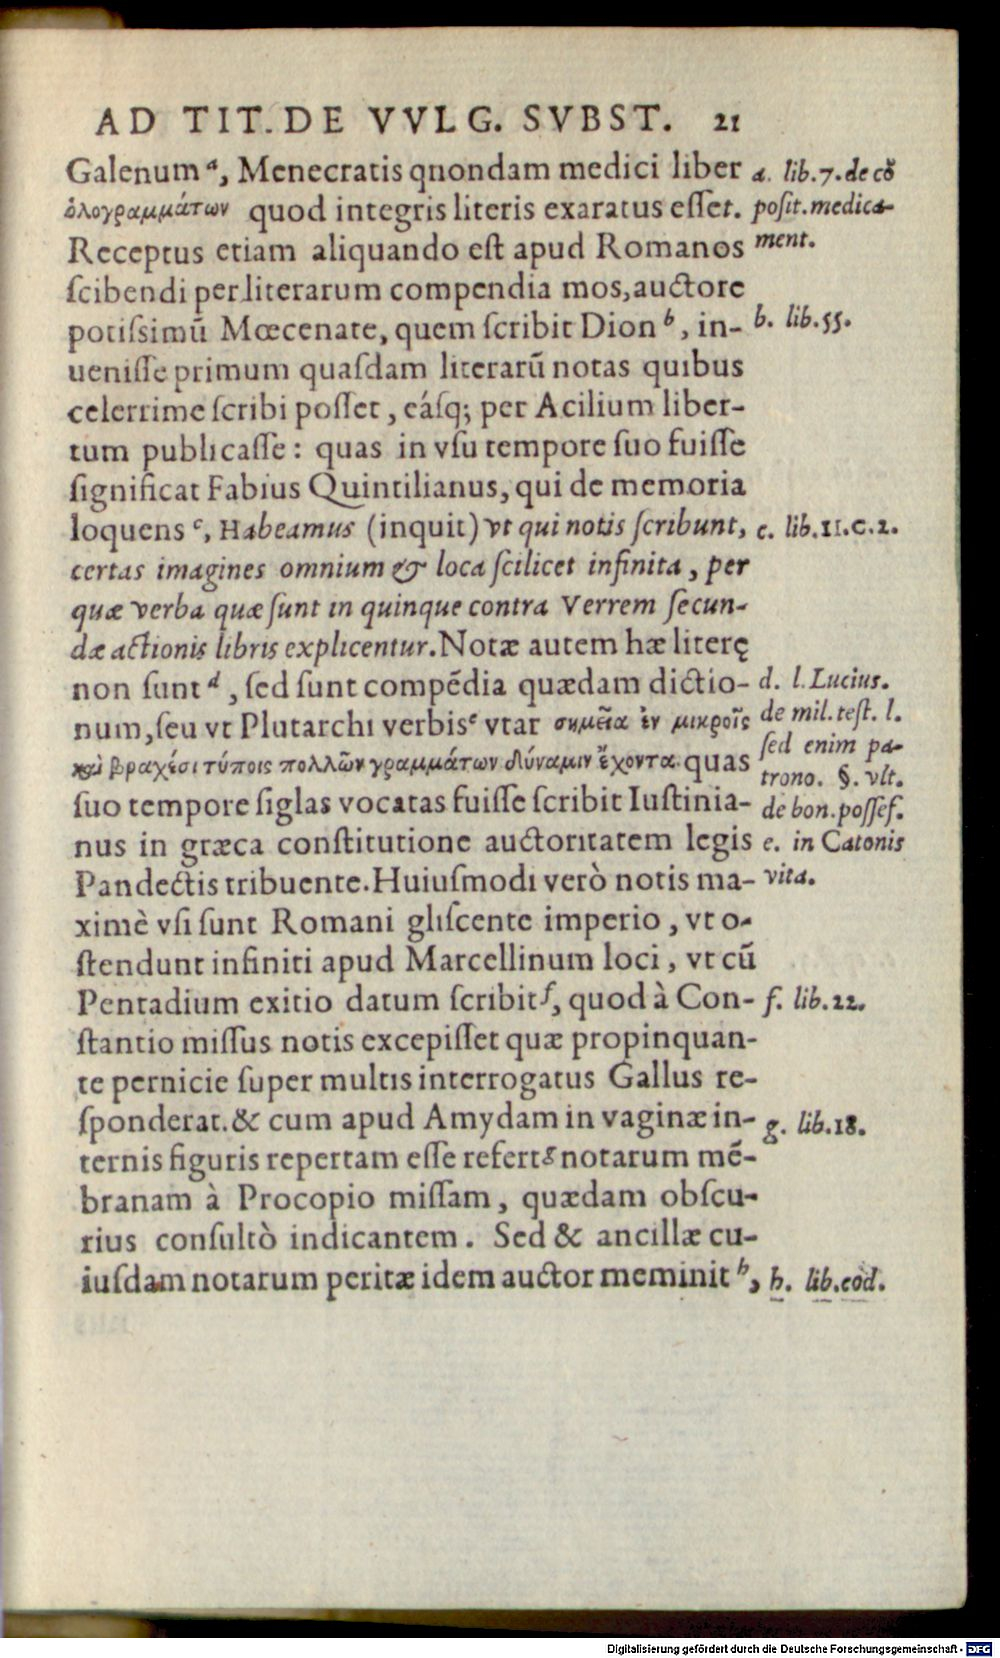 AD TIT. DE VVLG. SVBST. 21
Galenum a, Menecratis qnondam medici liber
ὁλογραμμάτων quod integris literis exaratus esset.
Receptus etiam aliquando est apud Romanos
scibendi per literarum compendia mos, auctore
potissimũ Mœcenate, quem scribit Dion b, in-
uenisse primum quasdam literarũ notas quibus
celerrime scribi posset, eásq; per Acilium liber-
tum publicasse: quas in vsu tempore suo fuisse
significat Fabius Quintilianus, qui de memoria
loquens c, Habeamus (inquit) vt qui notis scribunt,
certas imagines omnium & loca scilicet infinita, per
quæ verba quæ sunt in quinque contra Verrem secun-
dæ actionis libris explicentur. Notæ autem hæ literę
non sunt d, sed sunt compẽdia quædam dictio-
num, seu vt Plutarchi verbis e vtar σημεῖα ἐν μικροῖς
καὶ βραχέσι τύποις πολλῶν γραμμάτων δύναμιν ἔχοντα. quas
suo tempore siglas vocatas fuisse scribit Iustinia-
nus in græca constitutione auctoritatem legis
Pandectis tribuente. Huiusmodi verò notis ma-
ximè vsi sunt Romani gliscente imperio, vt o-
stendunt infiniti apud Marcellinum loci, vt cũ
Pentadium exitio datum scribit f, quod à Con-
stantio missus notis excepisset quæ propinquan-
te pernicie super multis interrogatus Gallus re-
sponderat. & cum apud Amydam in vaginæ in-
ternis figuris repertam esse refert g notarum mẽ-
branam à Procopio missam, quædam obscu-
rius consultò indicantem. Sed & ancillæ cu-
iusdam notarum peritæ idem auctor meminit h,
a. lib. 7. de cõ
posit. medica-
ment.
b. lib. 55.
c. lib. 11. c. 2.
d. l. Lucius.
de mil. test. l.
sed enim pa-
trono. §. vlt.
de bon. possef.
e. in Catonis
vita.
f. lib. 22.
g. lib. 18.
h. lib. eod.
Digitalisierung gefördert durch die Deutsche Forschungsgemeinschaft - DFG